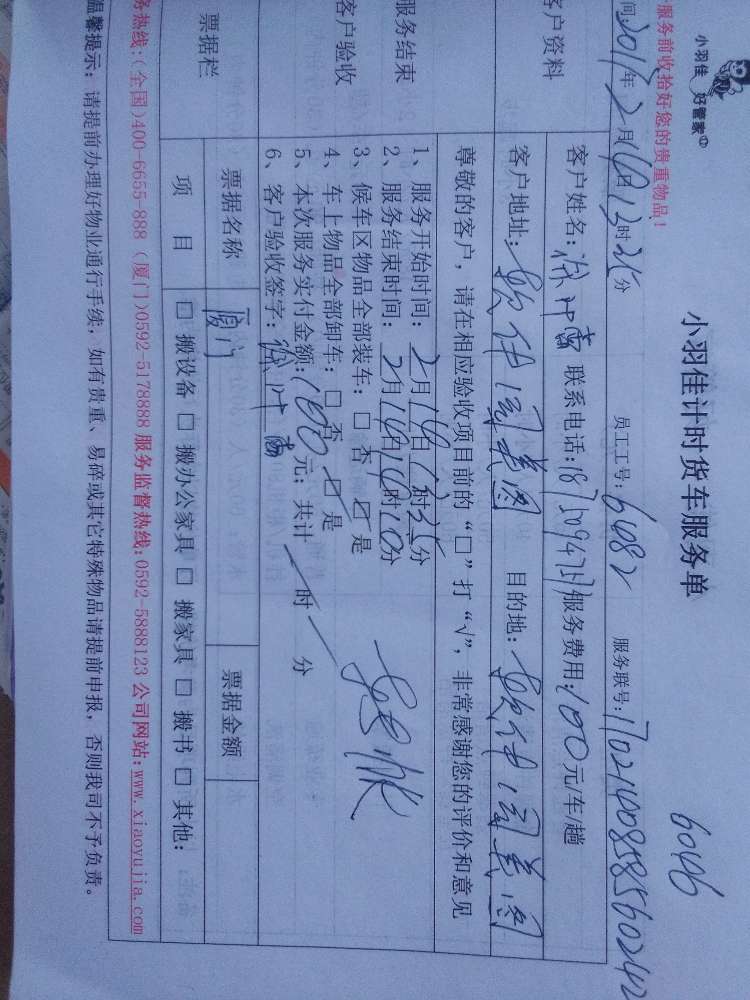 小羽佳 好管家
服务前收拾好您的贵重物品！
小羽佳计时货车服务单
6046
间:2017年2月14日13时25分 员工工号:6082 服务联号:1702140858560242
客户资料
客户姓名: 联系电话: 服务费用:100元/车/趟
客户地址:软件园 目的地:软件园
尊敬的客户，请在相应验收项目前的“□”打“√”，非常感谢您的评价和意见
服务结束
客户验收
1、服务开始时间：2月14日13时25分
2、服务结束时间：2月14日14时10分
3、候车区物品全部装车：□ 否 ☑ 是
4、车上物品全部卸车：□ 否 ☑ 是
5、本次服务实付金额:100元；共计 时 分
6、客户验收签字:
票据栏
票据名称 厦门 票据金额
项 目 □ 搬设备 □ 搬办公家具 □ 搬家具 □ 搬书 □ 其他：
务热线:(全国)400-6655-888 (厦门)0592-5178888 服务监督热线:0592-5888123 公司网站:www.xiaoyujia.com
温馨提示：请提前办理好物业通行手续；如有贵重、易碎或其它特殊物品请提前申报，否则我司不予负责。